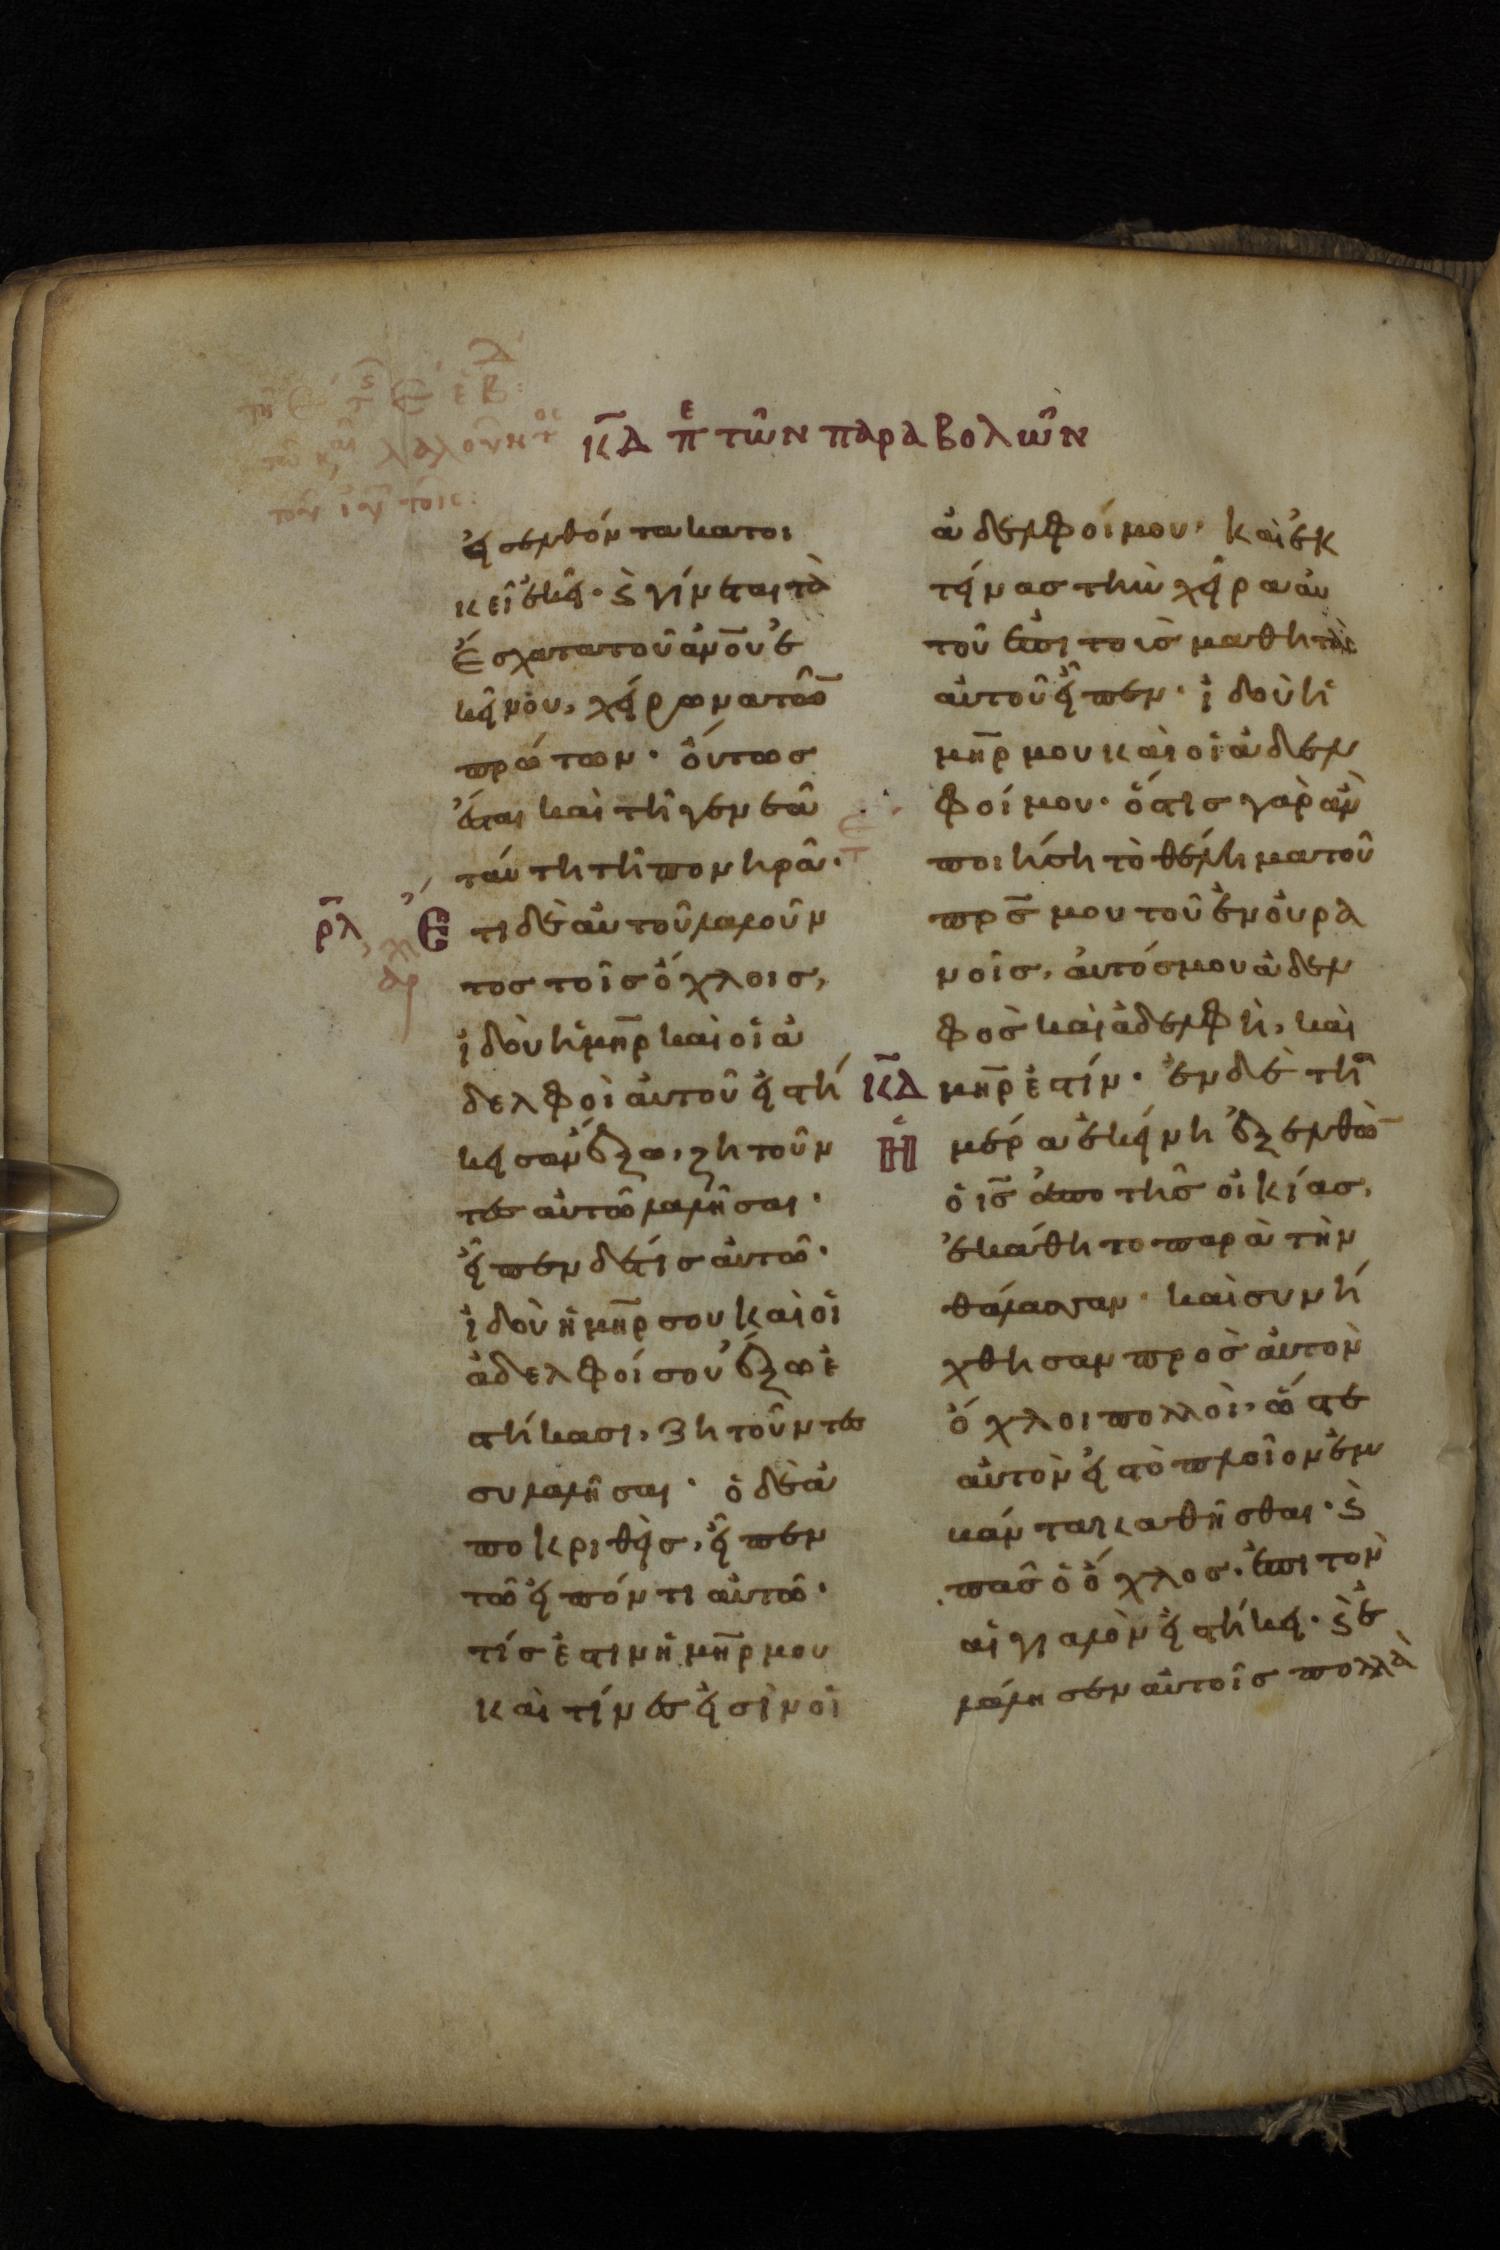 κ̅δ̅ πε τῶν παραβολῶν
εἰσελθόντα κατοι
κεῖ ἐκεῖ· ϗ γίνεται τὰ
ἔσχατα τοῦ ἀν̅ο̅υ̅ ἐ
κείνου, χείρωνα τῶ̅
πρώτων· οὕτωσ
ἔσται καὶ τῆ γενεᾶ
ταύτη τῆ πονηρᾶ·
ρ̅λ
Ἔτι δὲ αὐτοῦ λαλοῦν
τοσ τοῖσ ὄχλοισ,
ἰδοὺ ἡ μη̅ρ καὶ οἱ ἀ
δελφοὶ αὐτοῦ εἱστή
κεισαν ἔξω, ζητοῦν
τεσ αὐτῶ λαλῆσαι·
εἶπεν δέ τισ αὐτῶ·
ἰδοὺ ἡ μη̅ρ σου καὶ οἱ
ἀδελφοί σου ἔξω ἑ
στήκασι, ζητοῦντέσ
σοι λαλῆσαι· ὁ δὲ ἀ
ποκριθεὶσ, εἶπεν
τῶ εἰπόντι αὐτῶ·
τίσ ἐστιν ἡ μη̅ρ μου
καὶ τίνεσ εἰσὶν οἱ
ἀδελφοί μου· καὶ ἐκ
τείνασ τὴν χεῖρα αὐ
τοῦ ἐπὶ τοὺσ μαθητὰς
αὐτοῦ εἶπεν· ἰδοὺ ἡ
μη̅ρ μου καὶ οἱ ἀδελ
φοί μου· ὅστισ γὰρ ἂν
ποιήση τὸ θέλημα τοῦ
πρ̅σ̅ μου τοῦ ἐν οὐρα
νοῖσ, αὐτόσ μου ἀδελ
φὸσ καὶ ἀδελφὴ, καὶ
κ̅δ̅ μη̅ρ ἐστίν· ἐν δὲ τῆ ἡ
μέρα ἐκείνη ἐξελθὼ̅
ὁ ι̅σ̅ ἀπὸ τῆσ οἰκίασ,
ἐκάθητο παρὰ τὴν
θάλασσαν· καὶ συνή
χθησαν πρὸσ αὐτὸν
ὄχλοι πολλοὶ, ὥστε
αὐτὸν εἰσ τὸ πλοῖον ἐμ
βάντα καθῆσθαι· ϗ
πᾶσ ὁ ὄχλοσ, ἐπὶ τὸν
αἰγιαλὸν εἱστήκει· ϗ ἐ
λάλησεν αὐτοῖσ πολλὰ